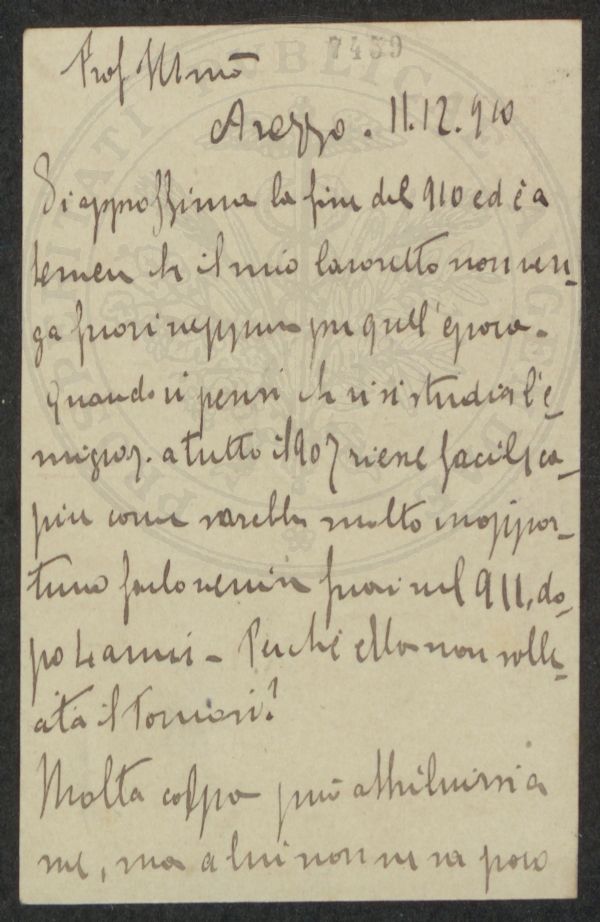 7459
Prof Ill.mo
Arezzo. 11.12.910
Si approssima la fine del 910 ed è a
temere che il mio lavoretto non ven-
ga fuori neppure per quell'epoca.
Quando si pensi che vi si studia l'e-
migraz. a tutto il 907 viene facile ca-
pire come sarebbe molto inoppor-
tuno farlo venire fuori nel 911, do-
po 4 anni - Perché ella non solle-
cita il
Molta colpa può attribuirsi a
me, ma a lui non ne va poco